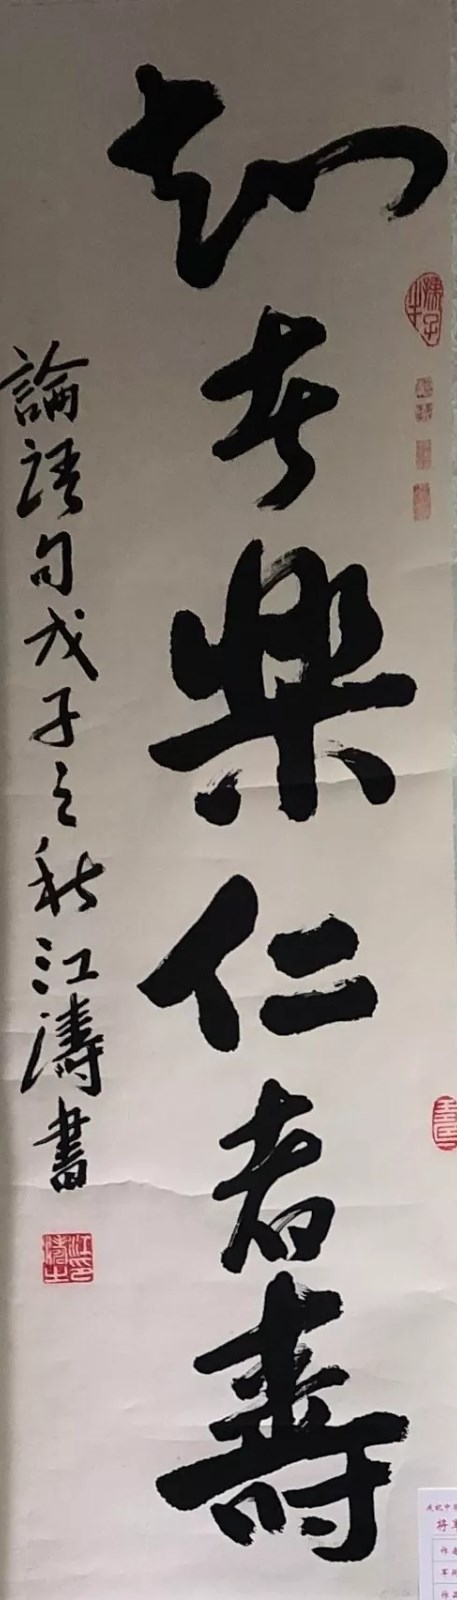 知者樂仁者壽
論語句戊子之秋江濤書